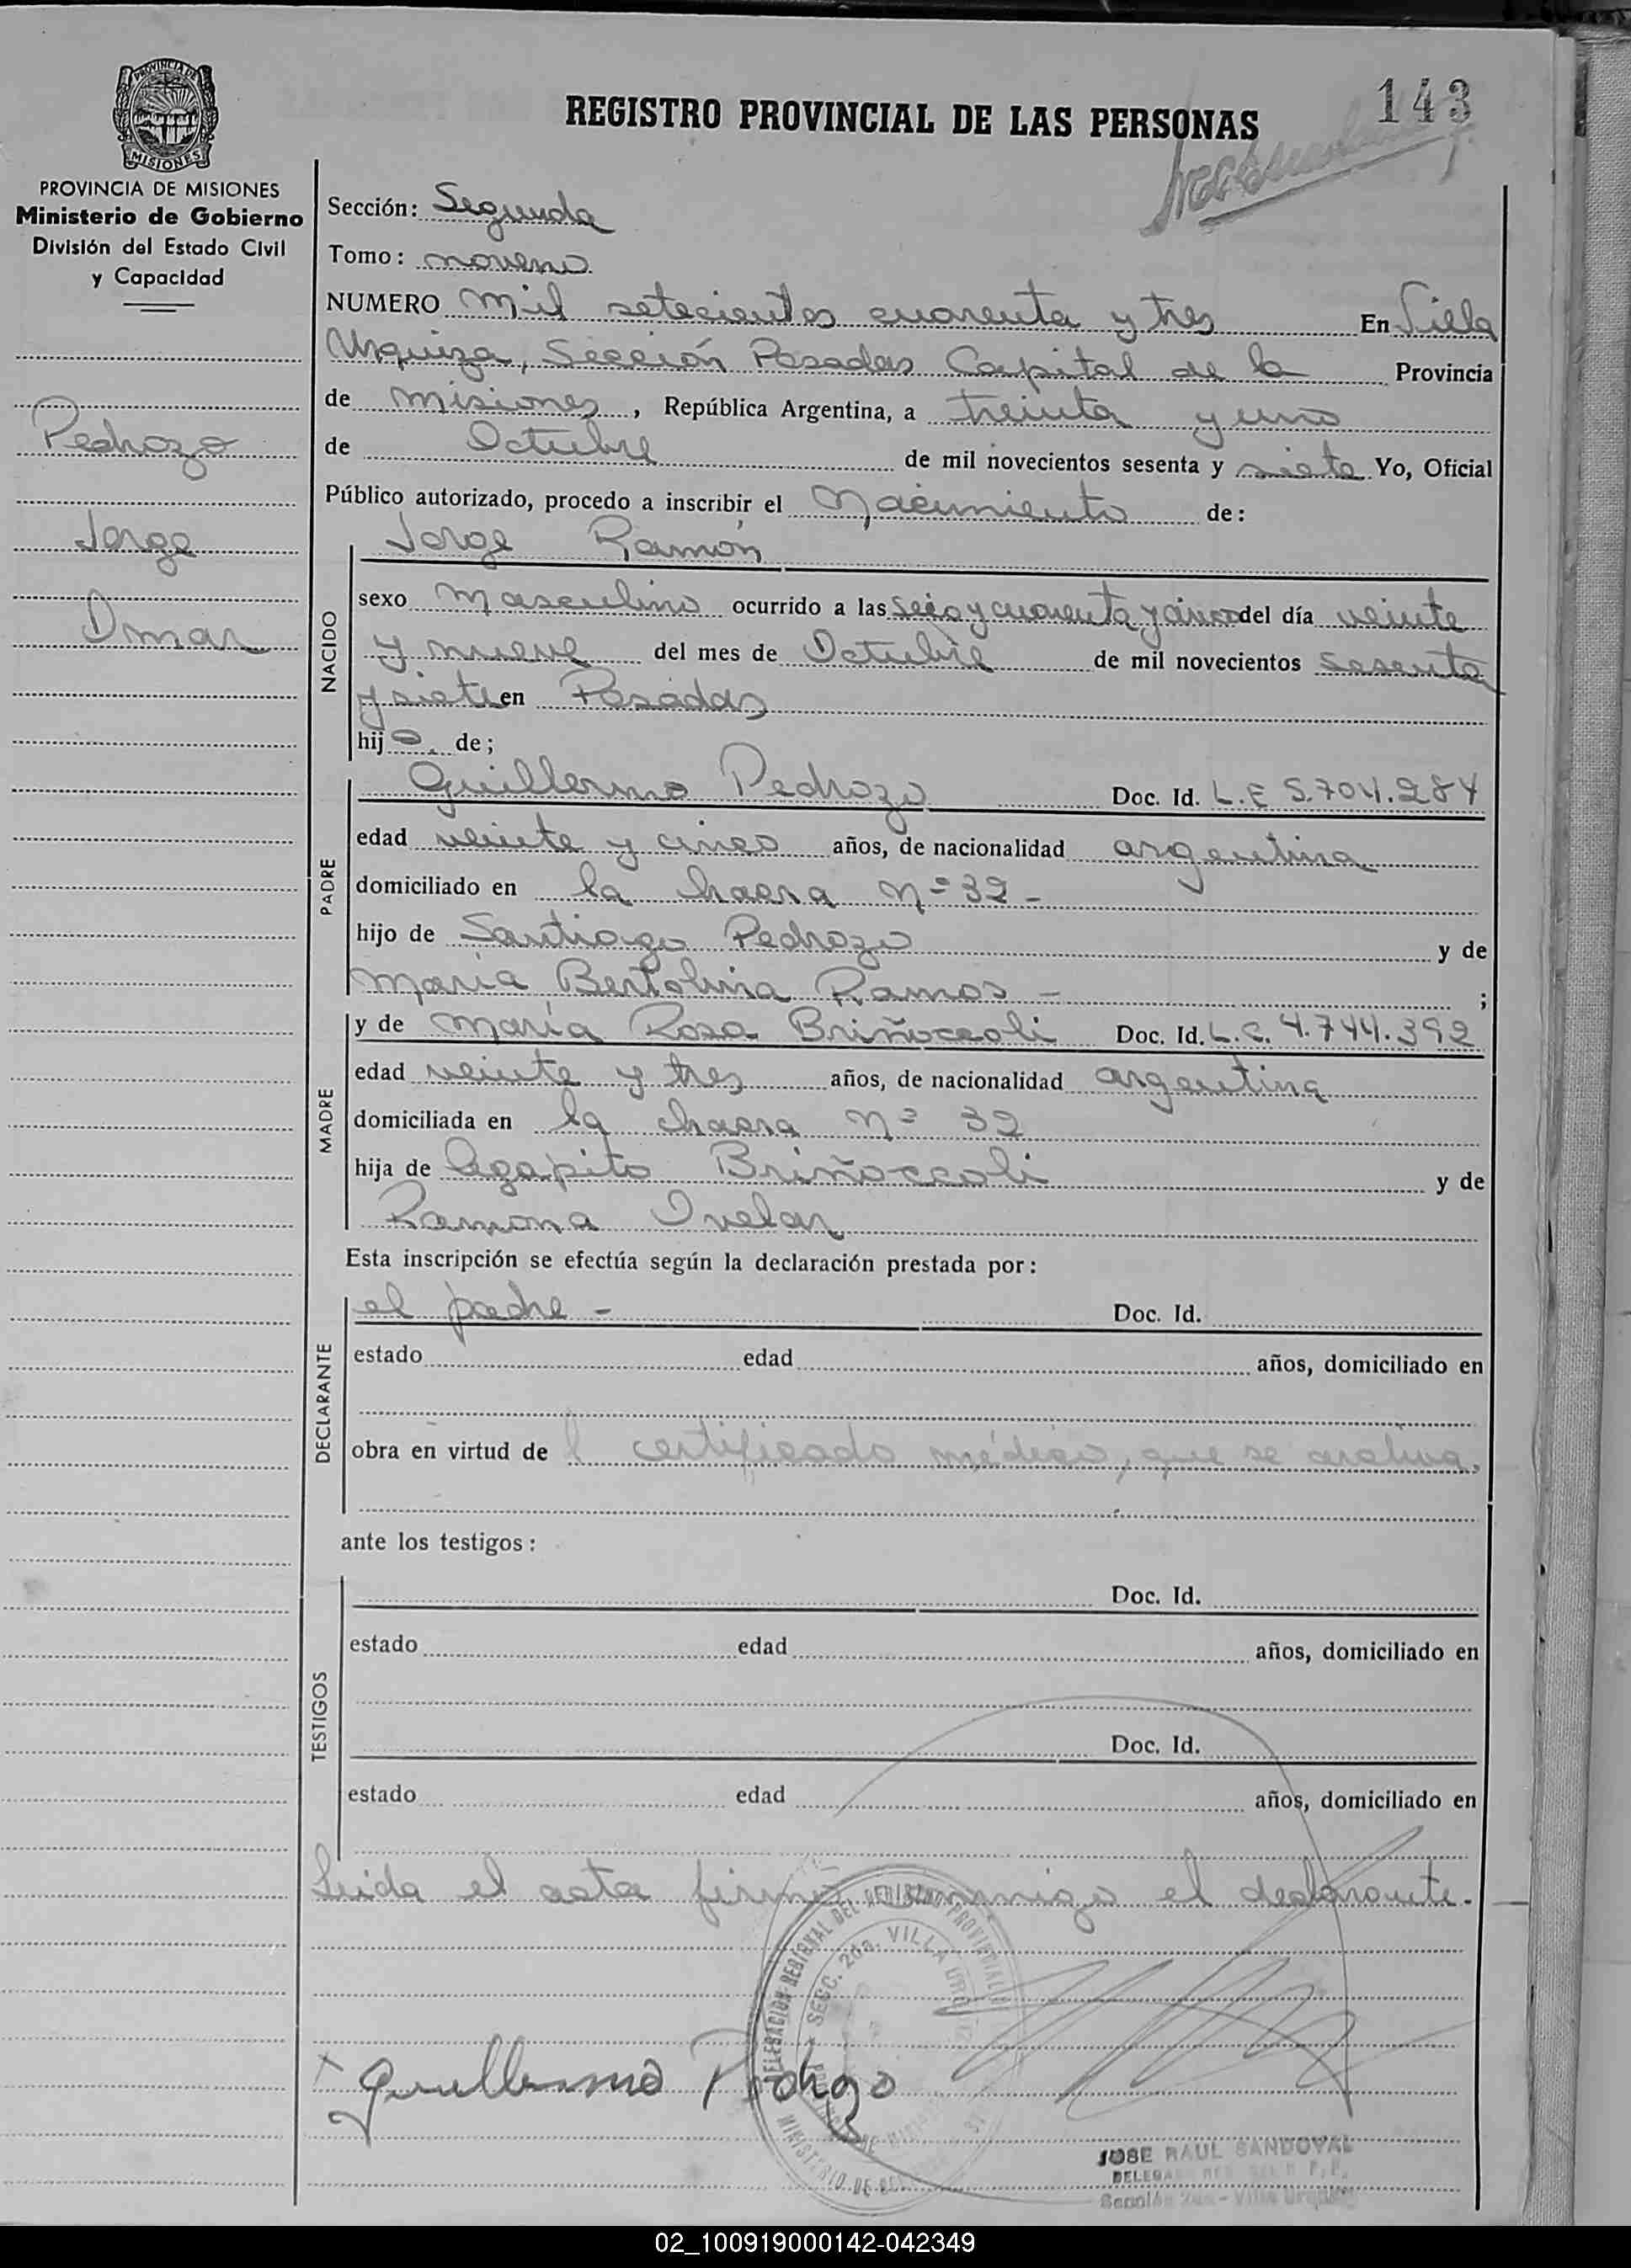 143
REGISTRO PROVINCIAL DE LAS PERSONAS
PROVINCIA DE
MISIONES
PROVINCIA DE MISIONES
Ministerio de Gobierno
División del Estado Civil
y Capacidad
Pedrozo
Jorge
Omar
Sección: Segunda
Tomo: noveno
NUMERO Mil setecientos cuarenta y tres En Villa
Urquiza, Sección Posadas Capital de la Provincia
de Misiones, República Argentina, a treinta y uno
de Octubre de mil novecientos sesenta y siete Yo, Oficial
Público autorizado, procedo a inscribir el Nacimiento de:
Jorge Ramón
NACIDO
sexo masculino ocurrido a las seis y cuarenta y cinco del día veinte
y nueve del mes de Octubre de mil novecientos sesenta
y siete en Posadas
hijo. de;
PADRE
Guillermo Pedrozo Doc. Id. L.E 5.704.284
edad veinte y cinco años, de nacionalidad argentina
domiciliado en la chacra Nº 32 -
hijo de Santiago Pedrozo y de
María Bertolina Ramos - ;
MADRE
y de María Rosa Briñoccoli Doc. Id. L.C. 4.744.392
edad veinte y tres años, de nacionalidad argentina
domiciliada en la chacra Nº 32
hija de Agapito Briñoccoli y de
Ramona Ovelar
Esta inscripción se efectúa según la declaración prestada por:
DECLARANTE
el padre - Doc. Id.
estado edad años, domiciliado en
obra en virtud del certificado médico, que se archiva.
ante los testigos:
TESTIGOS
Doc. Id.
estado edad años, domiciliado en
Doc. Id.
estado edad años, domiciliado en
Leida el acta firma conmigo el declarante.-
DELEGACION REGIONAL DEL REGISTRO PROVINCIAL
SECC. 2da. VILLA URQUIZA
MINISTERIO DE
Guillermo Pedrozo
JOSE RAUL SANDOVAL
Sección 2da - Villa Urquiza
02_100919000142-042349